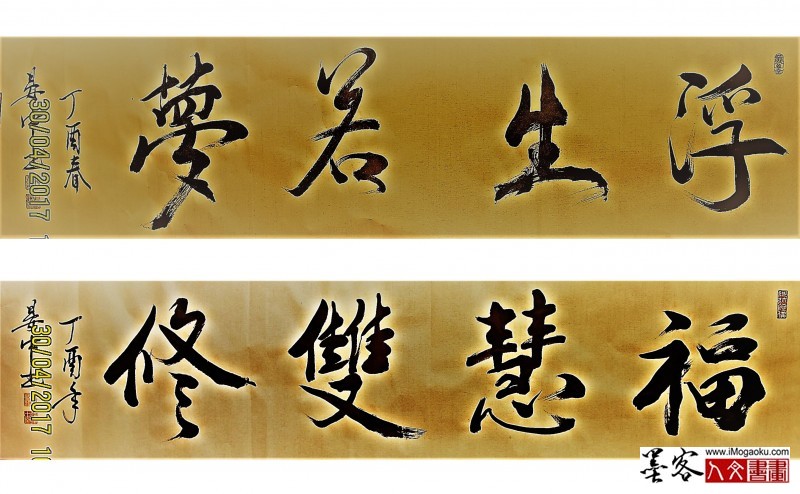 浮生若夢
丁酉春
30/04/2017 1
福慧雙修
丁酉年
30/04/2017 10
墨客
www.iMogaoku.com
人文書畫